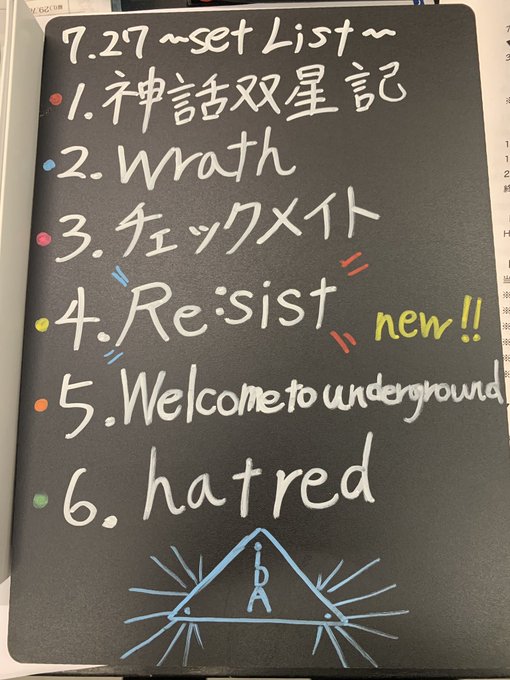 7.27 ~set List~
1.神話双星記
2.wrath
3.チェックメイト
4.Re:sist new!!
5.Welcome to underground
6.hatred
iDA